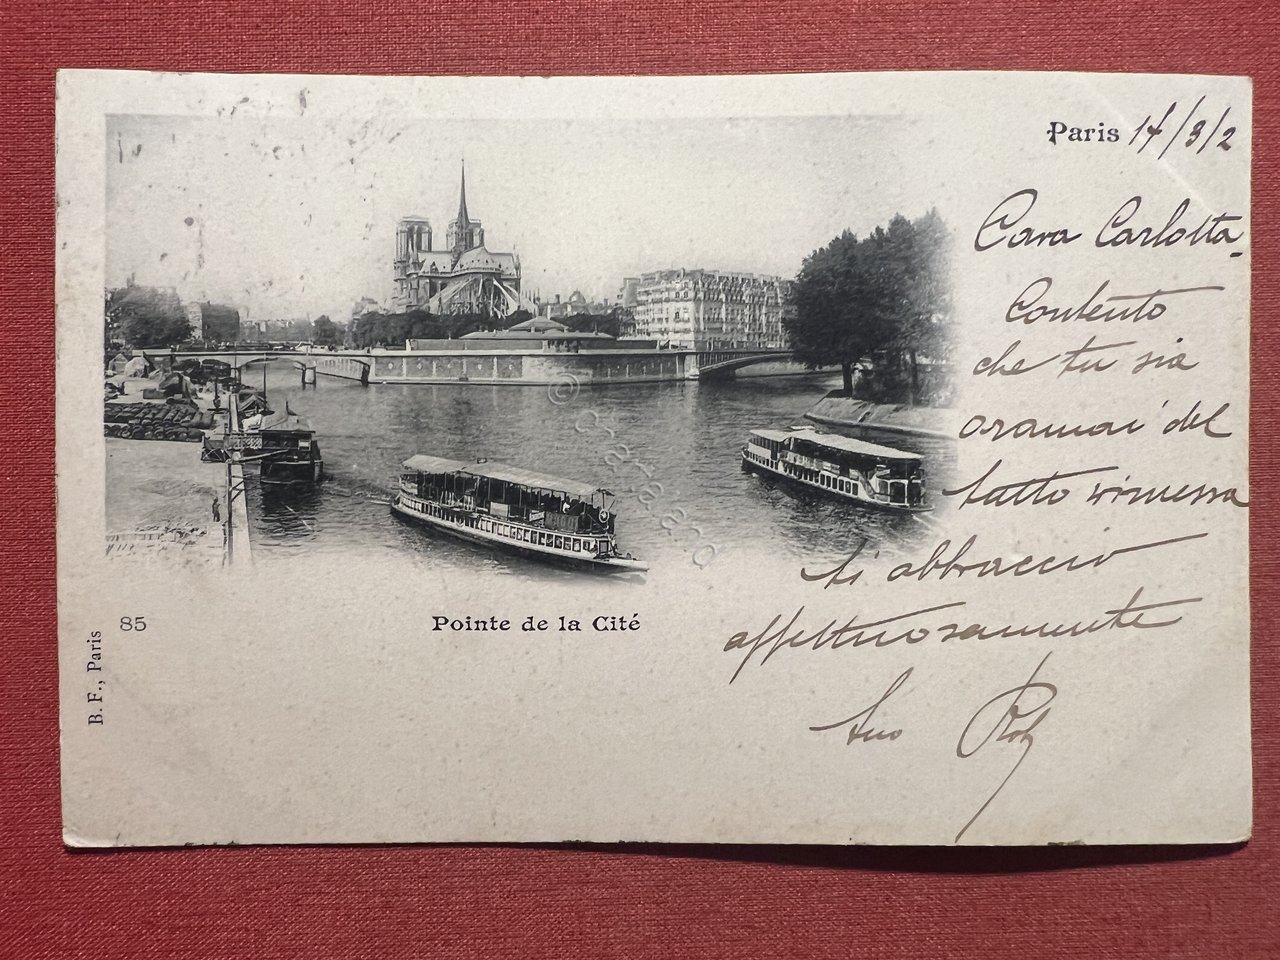 Paris 14/3/2
Cara Carlotta
Contento
che tu sia
oramai del
tutto rimessa
ti abbraccio
affettuosamente
tuo Rob
© cartaino
85
Pointe de la Cité
B. F., Paris